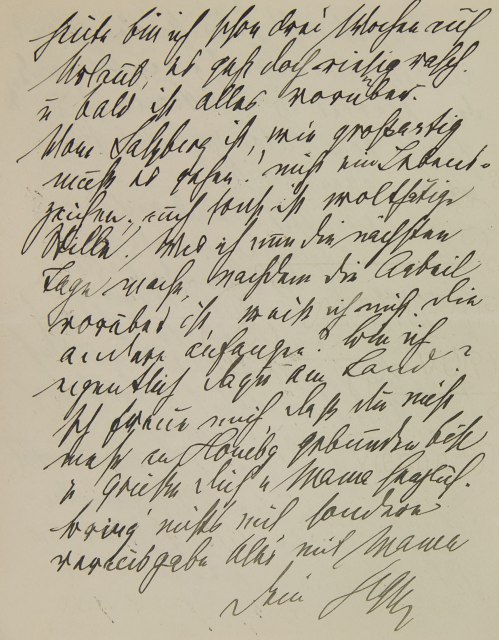 heute bin ich schon drei Wochen auf
Urlaub, es geht doch riesig rasch.
u bald ist alles vorüber.
Vom Salzberg ist, wie großartig
es gehen! nicht ein Lebens-
zeichen, auch sonst ist wolthätige
Stille! Was ich nun die nächsten
Tage mache, nachdem die Arbeit
vorüber ist, weiß ich nicht. Die
andere anfangen? bin ich
eigentlich dazu am Land?
Ich freue mich, daß du nicht
mehr an gebunden bist
u grüße dich u Mama herzlich.
bring nichts mit sondern
alles mit Mama
Dein